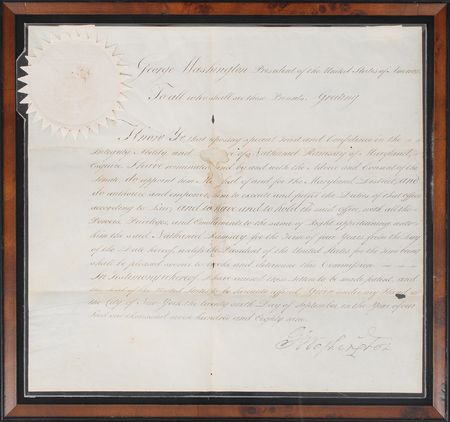 George Washington President of the United States of America
To all who shall see these Presents Greeting
Know Ye, that reposing special Trust and Confidence in the
Integrity, Ability and of Nathaniel Ramsay of Maryland,
Esquire, I have nominated, and by and with the Advice and Consent of the
Senate, do appoint him of and for the Maryland District, and
do authorize and empower him to execute and fulfil the Duties of that office
according to Law; and to have and to hold the said office, with all the
Powers, Privileges and Emoluments to the same of Right appertaining unto
him the said Nathaniel Ramsay for the Term of four Years from the Day
of the Date hereof, unless the President of the United States for the time being
should be pleased sooner to revoke and determine this Commission
In Testimony whereof I have caused these Letters to be made patent, and
the Seal of the United States to be hereunto affixed. Given under my Hand at
the City of New York the twenty sixth Day of September in the Year of our
Lord one thousand seven hundred and Eighty nine.
G Washington